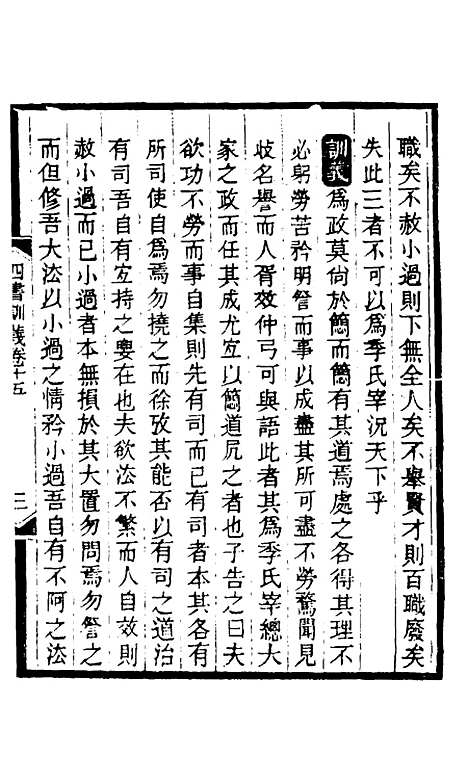 職矣不赦小過則下無全人矣不舉賢才則百職廢矣
失此三者不可以為季氏宰況天下乎
訓義為政莫尙於簡而簡有其道焉處之各得其理不
必躬勞苦矜明詧而事以成盡其所可盡不勞驚聞見
歧名譽而人胥效仲弓可與語此者其為季氏宰總大
家之政而任其成尤宜以簡道凥之者也子告之曰夫
欲功不勞而事自集則先有司而已有司者本其各有
所司使自為焉勿撓之而徐攷其能否以有司之道治
有司吾自有宜持之要在也夫欲法不繁而人自效則
赦小過而已小過者本無損於其大置勿問焉勿詧之
而但修吾大法以小過之情矜小過吾自有不阿之法
四書訓義卷十五
三